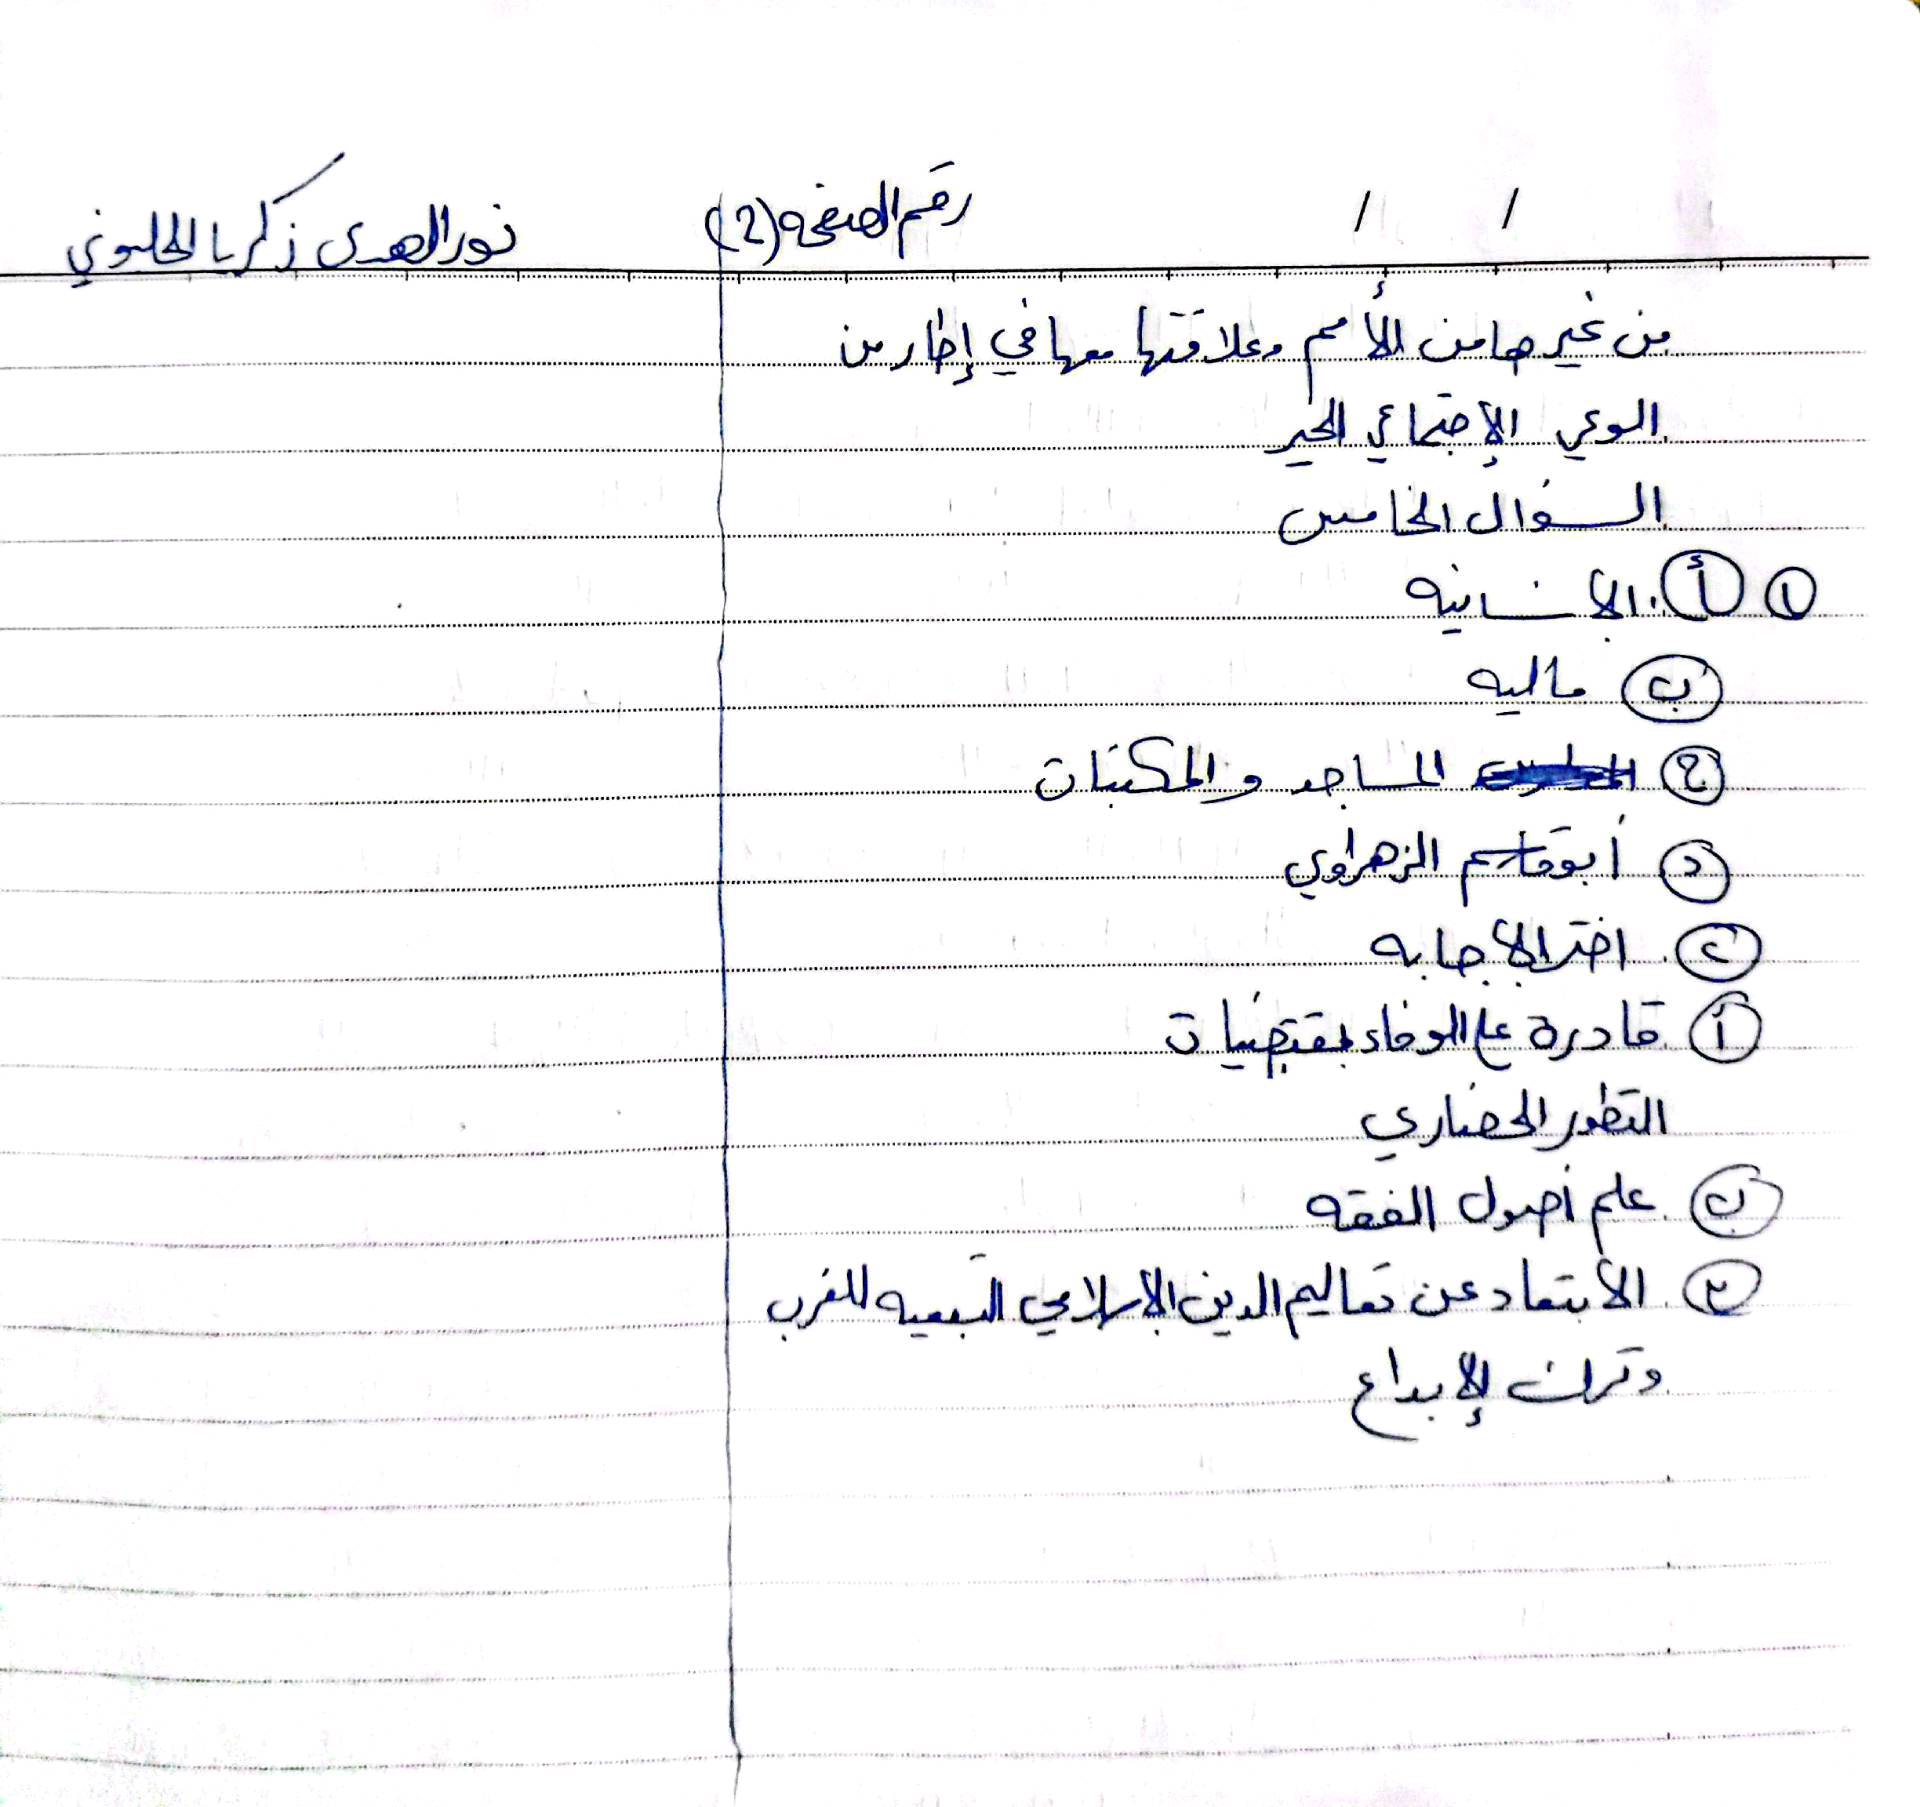 / / رقم الصفحه (2) نور الهدى زكريا الحلموني
من غيرها من الأمم وعلاقتها معها في إطار من
الوعي الإجتماعي الخير
السؤال الخامس
① أ الانسانيه
ب ماليه
ج المساجد والمكتبات
د أبو قاسم الزهراوي
ـ اختر الاجابه
أ قادرة على الوفاء بمقتضيات
التطور الحضاري
ب علم أصول الفقه
الابتعاد عن تعاليم الدين الإسلامي التبعيه للغرب
وترك الإبداع